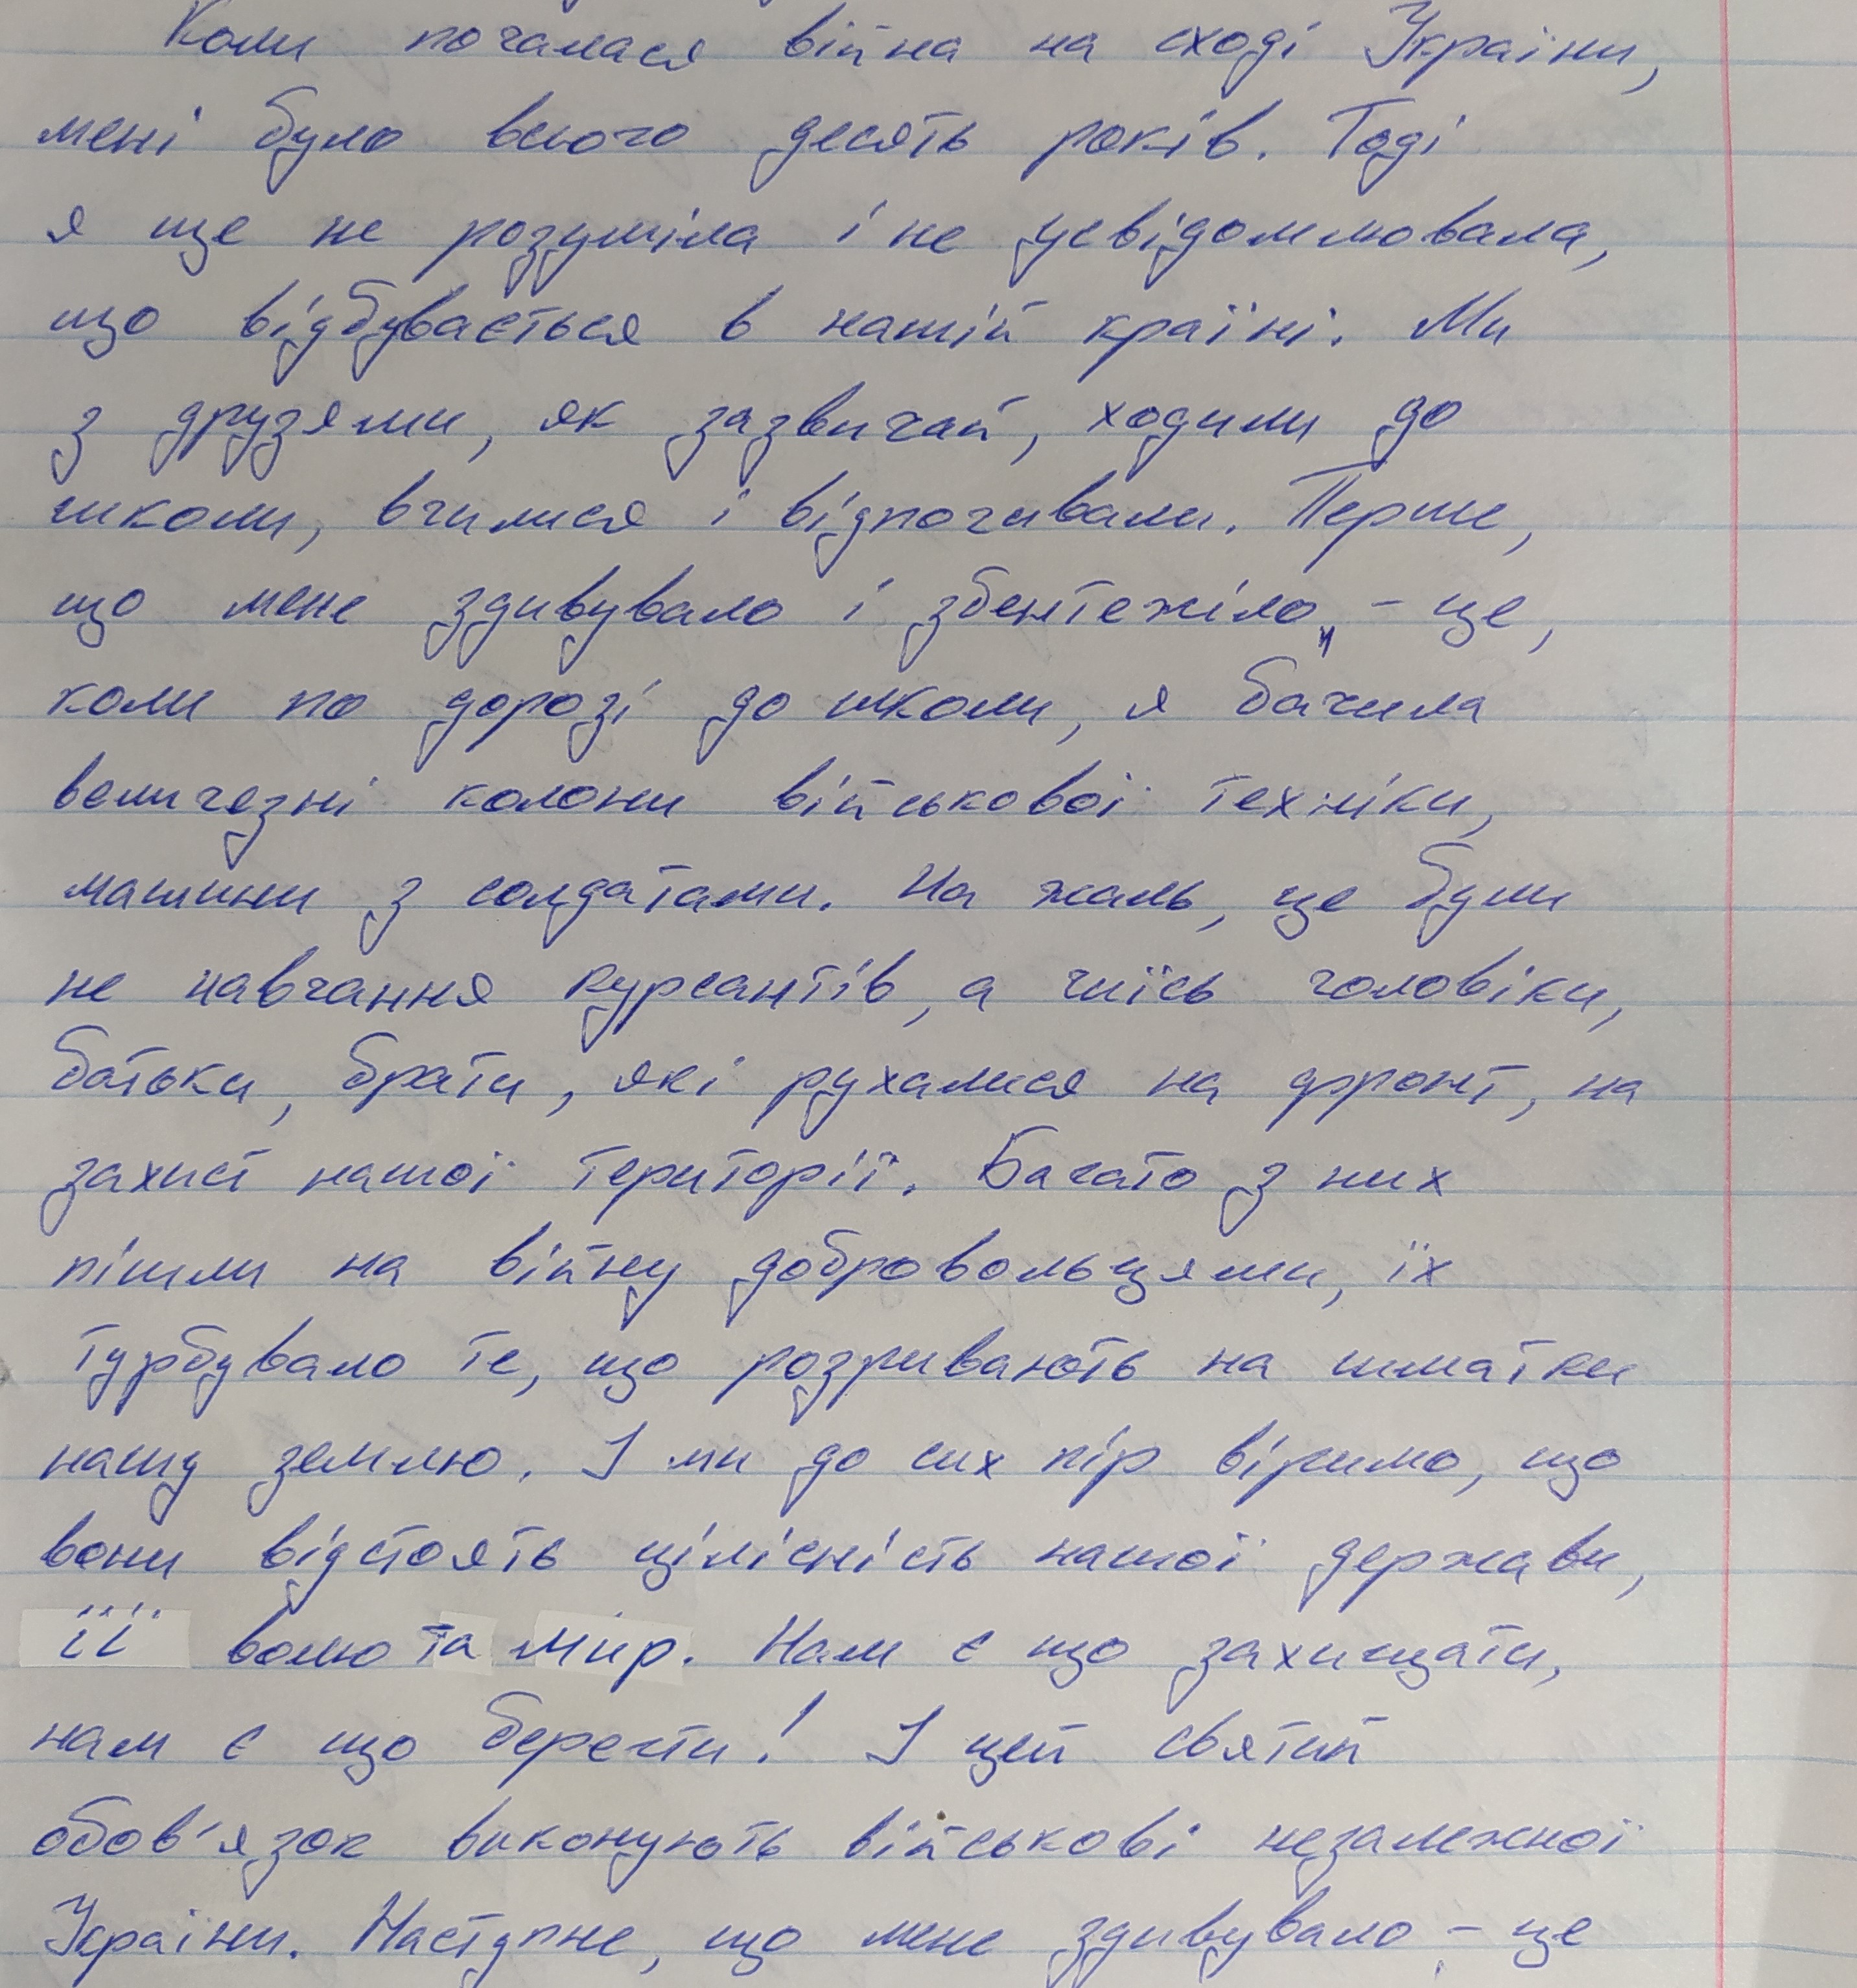 Коли почалася війна на сході України,
мені було всього десять років. Тоді
я ще не розуміла і не усвідомлювала,
що відбувається в нашій країні. Ми
з друзями, як зазвичай, ходили до
школи, вчилися і відпочивали. Перше,
що мене здивувало і збентежіло, - це,
коли по дорозі до школи, я бачила
величезні колони військової техніки,
машини з солдатами. На жаль, це були
не навчання курсантів, а чиїсь чоловіки,
батьки, брати, які рухалися на фронт, на
захист нашої території. Багато з них
пішли на війну добровольцями, їх
турбувало те, що розривають на шматки
нашу землю. І ми до сих пір віримо, що
вони відстоять цілісність нашої держави,
її волю та мир. Нам є що захищати,
нам є що берегти! І цей святий
обов'язок виконують військові незалежної
України. Наступне, що мене здивувало - це